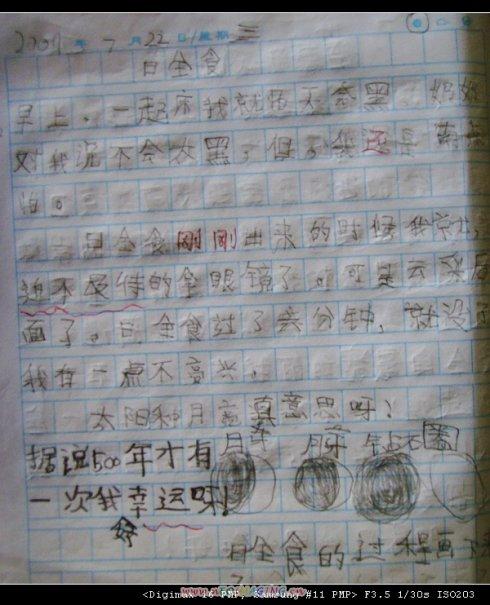 2009年7月22日星期三
日全食
早上,一起床我就怕天会黑,妈妈
对我说不会太黑,但是我还是
怕。
日全食刚刚出来的时候我就
迫不及待的拿眼镜了。可是云朵后
面了。日全食过了六分钟,就没了
我有一点不高兴,
太阳和月亮真意思呀!
据说500年才有
一次我幸运呀!
好
月牙 月牙 钻石圈
日全食的过程画下来
<Digimax i6 PMP, Samsung #11 PMP> F3.5 1/30s ISO203